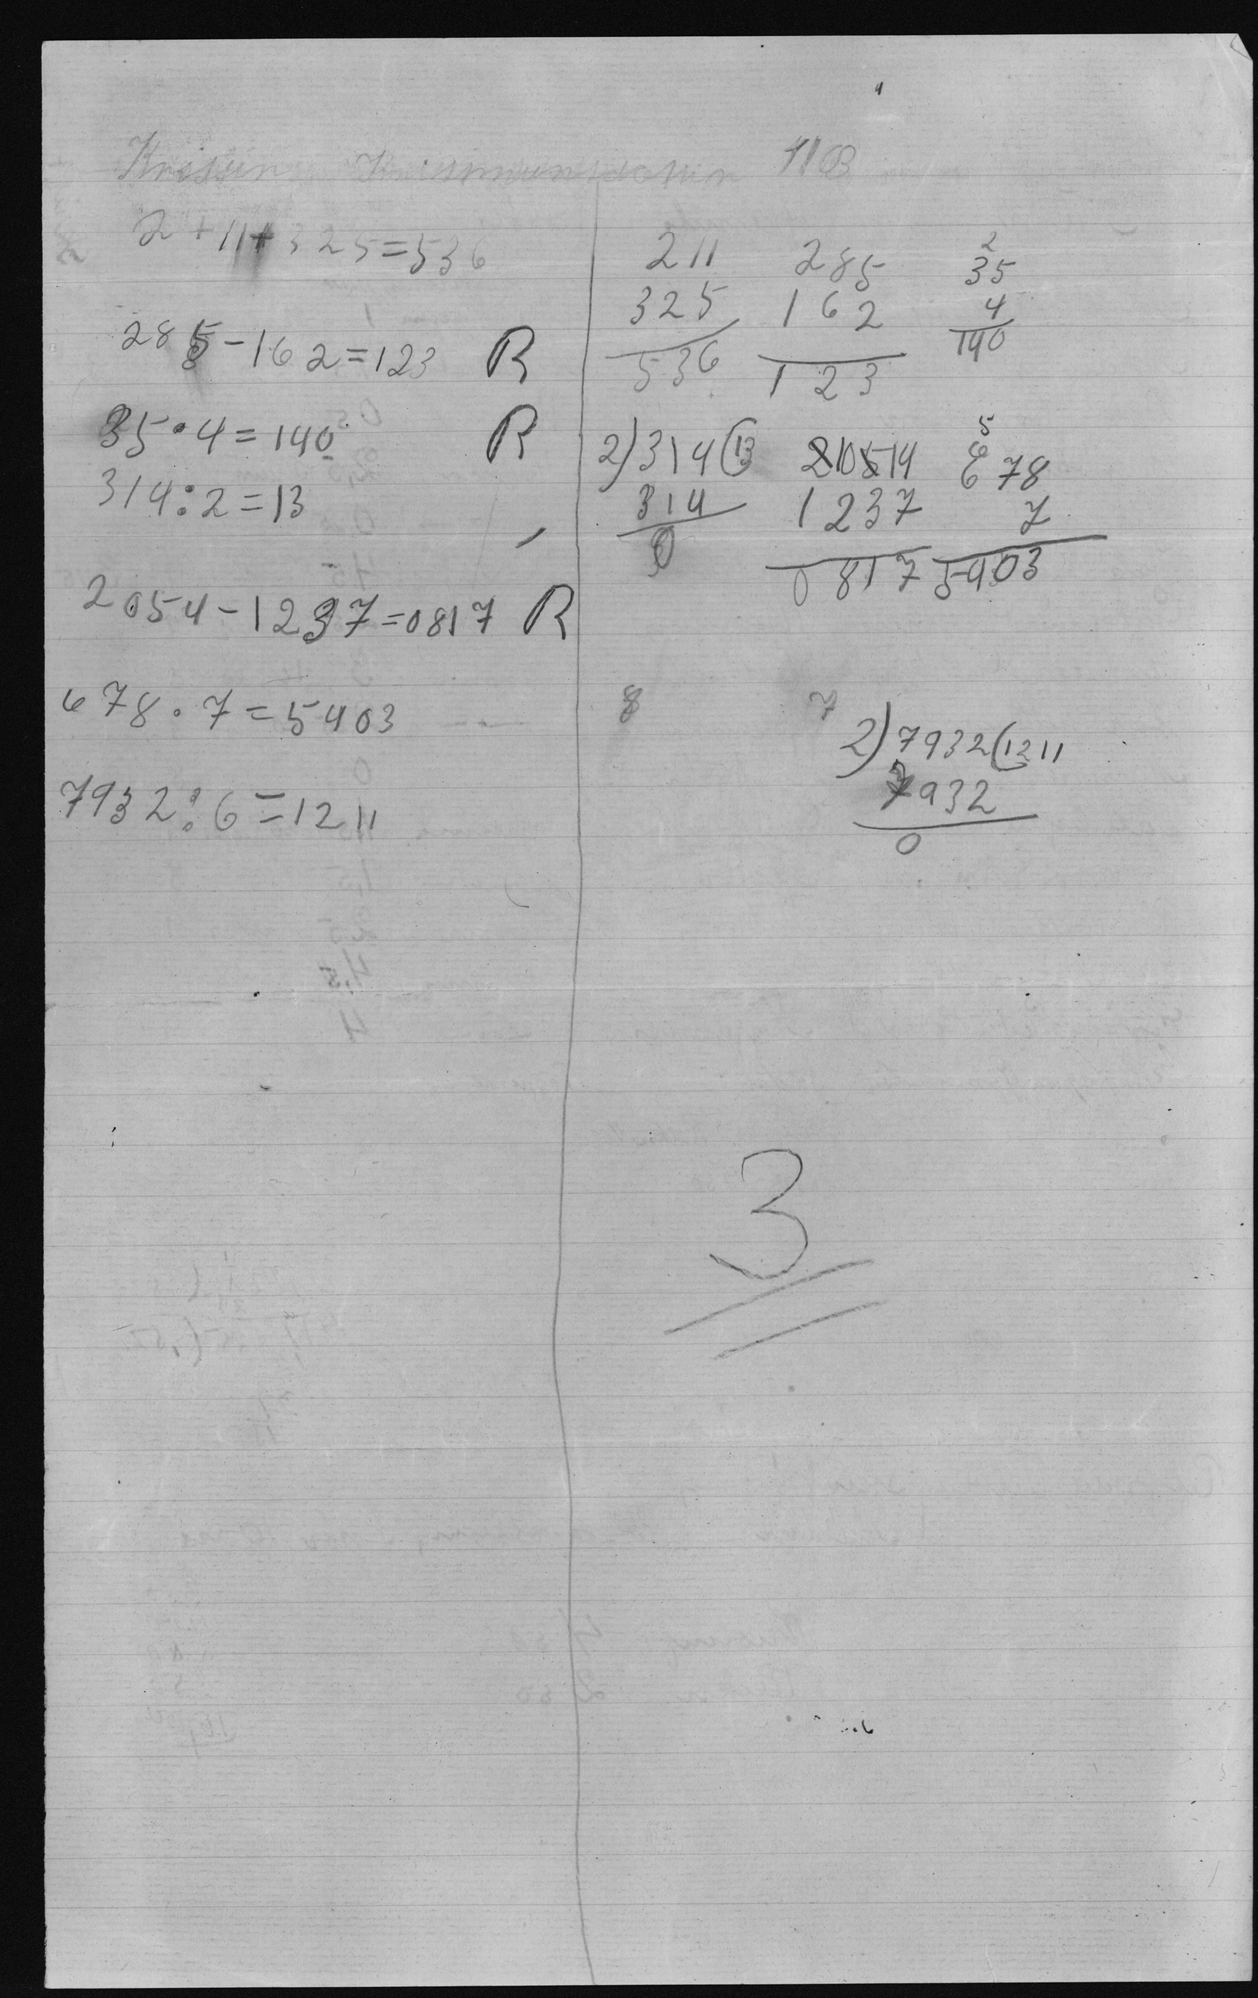 11 B
2+11+325=536
285-162=123 R
35·4=140 R
314:2=13
2054-1237=0817 R
678·7=5403
7932:6=1211
211 285 2
325 162 35
536 123 4
140
2)314(13 210514 5
314 1237 678
0 0817 7
5403
8 7
2)7932(1211
7932
0
3